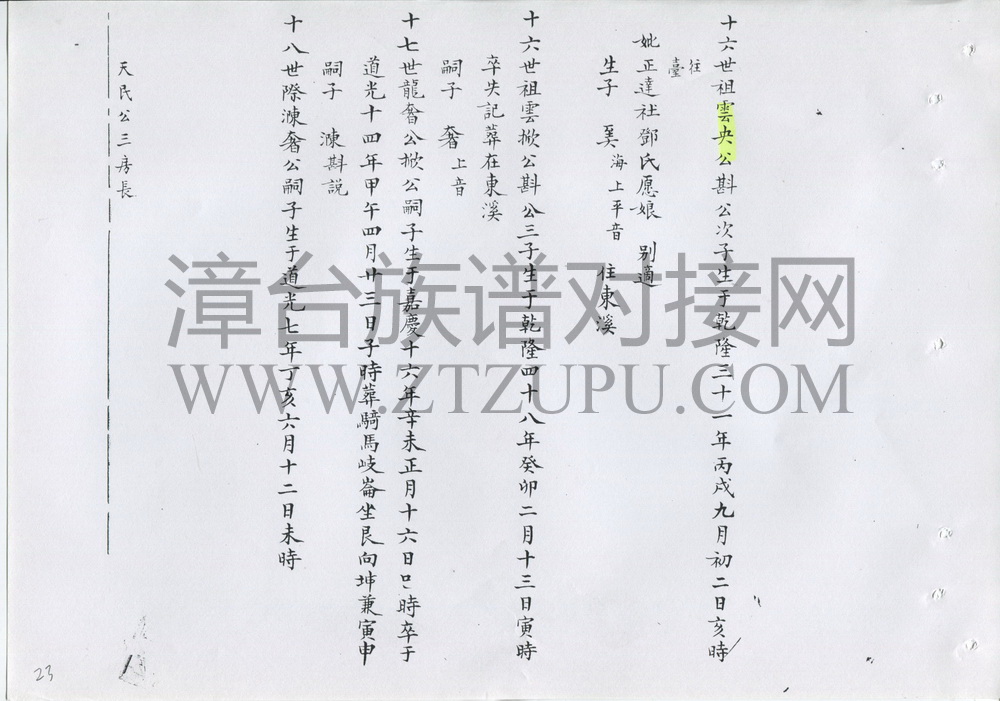 十六世祖雲央公斟公次子生于乾隆三十一年丙戌九月初二日亥時
往臺
妣正達社鄧氏愿娘 别適
生子 美海上平音 住東溪
十六世祖雲掀公斟公三子生于乾隆四十八年癸卯二月十三日寅時
卒失記葬在東溪
嗣子 奢上音
十七世龍奢公掀公嗣子生于嘉慶十六年辛未正月十六日 時卒于
道光十四年甲午四月廿三日子時葬騎馬岐崙坐艮向坤兼寅申
嗣子 涑斟説
十八世際涑奢公嗣子生于道光七年丁亥六月十二日未時
天民公三房長
漳台族谱对接网
WWW.ZTZUPU.COM
23